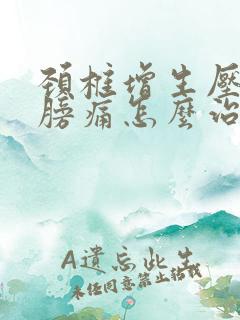 頸椎增生壓
膀痛怎麼治
A遺忘此生
未經同意禁止轉載